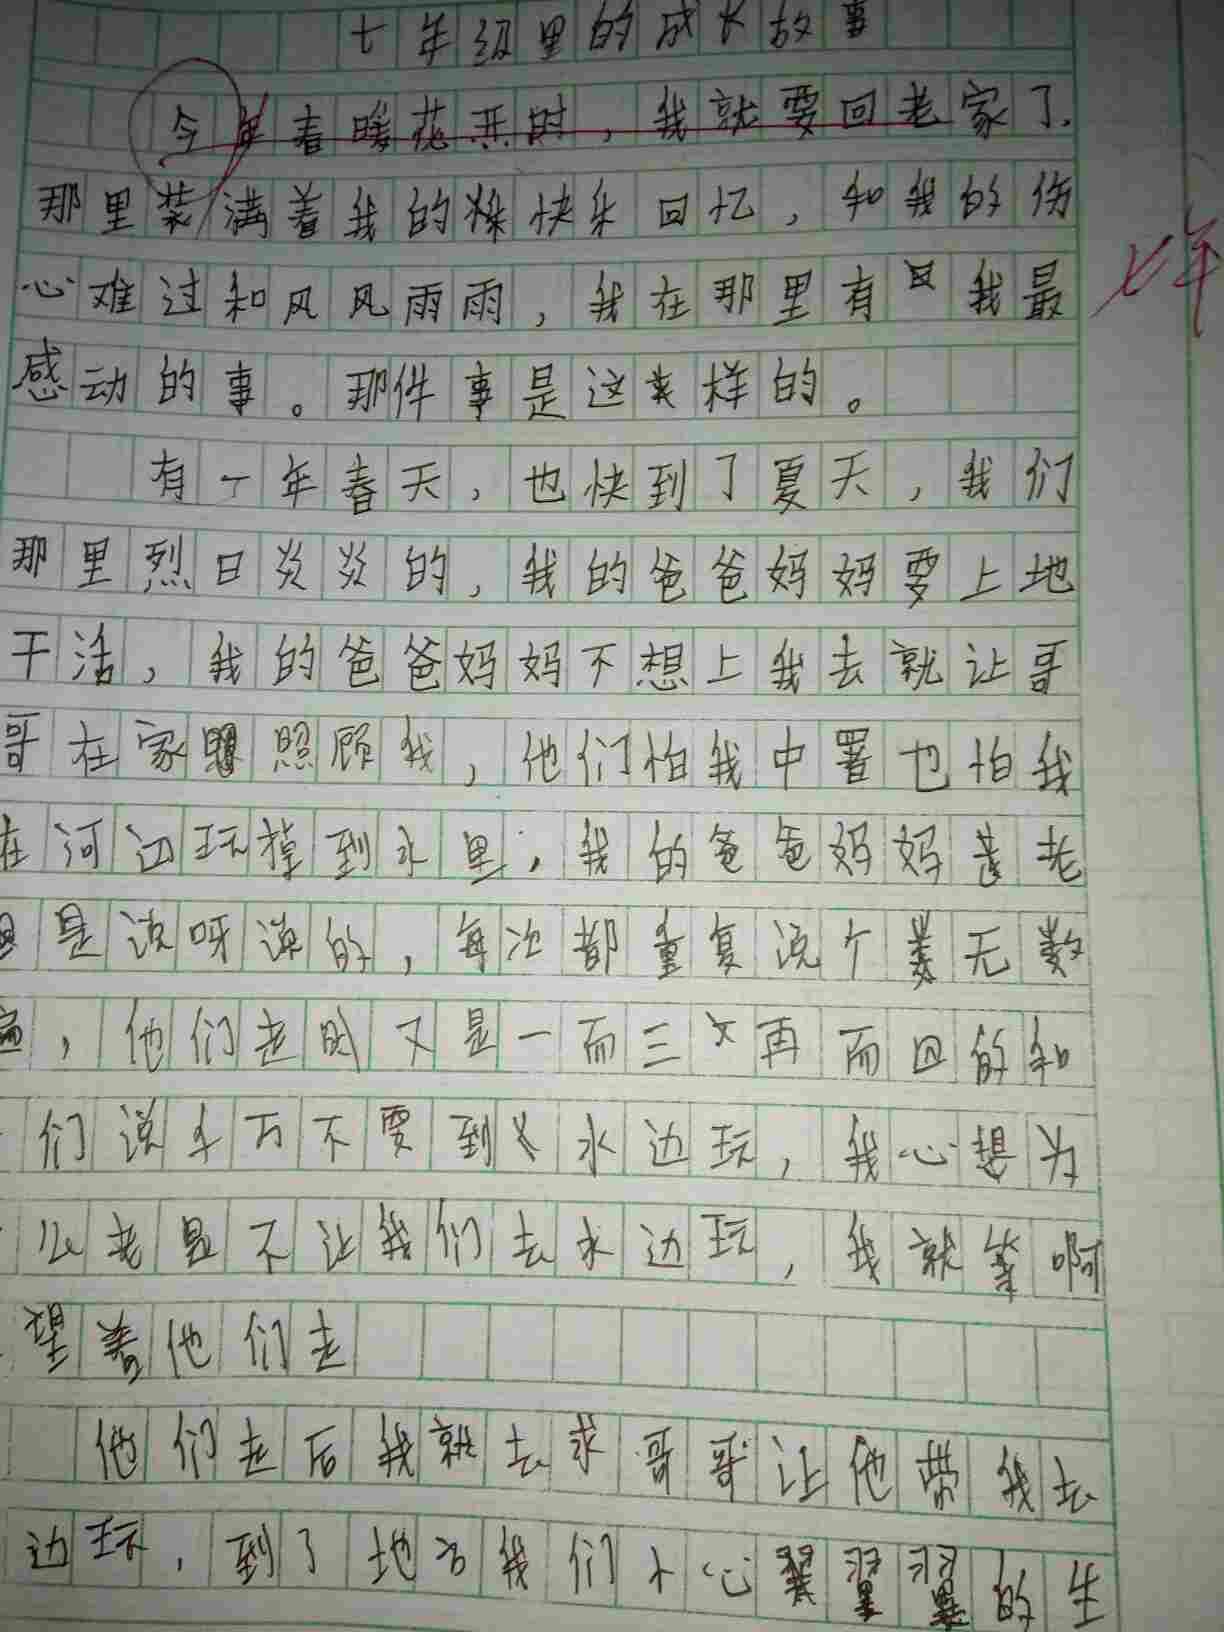 七年级里的成长故事
今年春暖花开时，我就要回老家了.
那里装满着我的快乐回忆，和我的伤
心难过和风风雨雨，我在那里有我最
感动的事。那件事是这样的。
有一年春天，也快到了夏天，我们
那里烈日炎炎的，我的爸爸妈妈要上地
干活，我的爸爸妈妈不想上我去就让哥
哥在家照顾我，他们怕我中署也怕我
在河边玩掉到水里，我的爸爸妈妈老
是说呀说的，每次都重复说个无数
遍，他们走时又是一而三再而四的和
们说千万不要到水边玩，我心想为
么老是不让我们去水边玩，我就等啊
望着他们走
他们走后我就去求哥哥让他带我去
边玩，到了地方我们小心翼翼的
七年